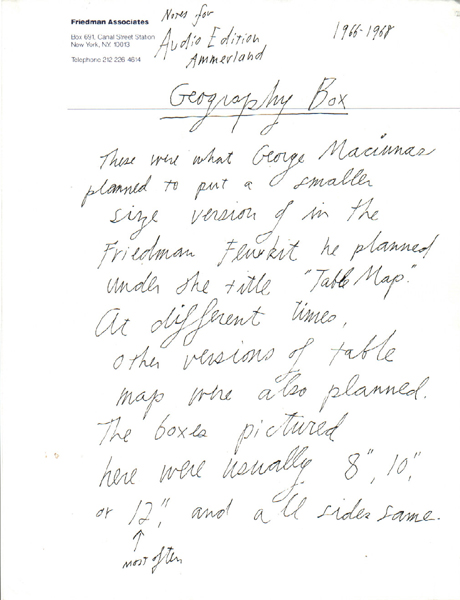 Friedman Associates
Box 691, Canal Street Station
New York, NY 10013
Telephone 212 226-4614
Notes for
Audio Edition
Ammerland
1966-1968
Geography Box
These were what George Maciunas
planned to put a smaller
size version of in the
Friedman Fluxkit he planned
under the title "Table Map".
At different times,
other versions of table
map were also planned.
The boxes pictured
here were usually 8", 10",
or 12", and all sides same.
most often